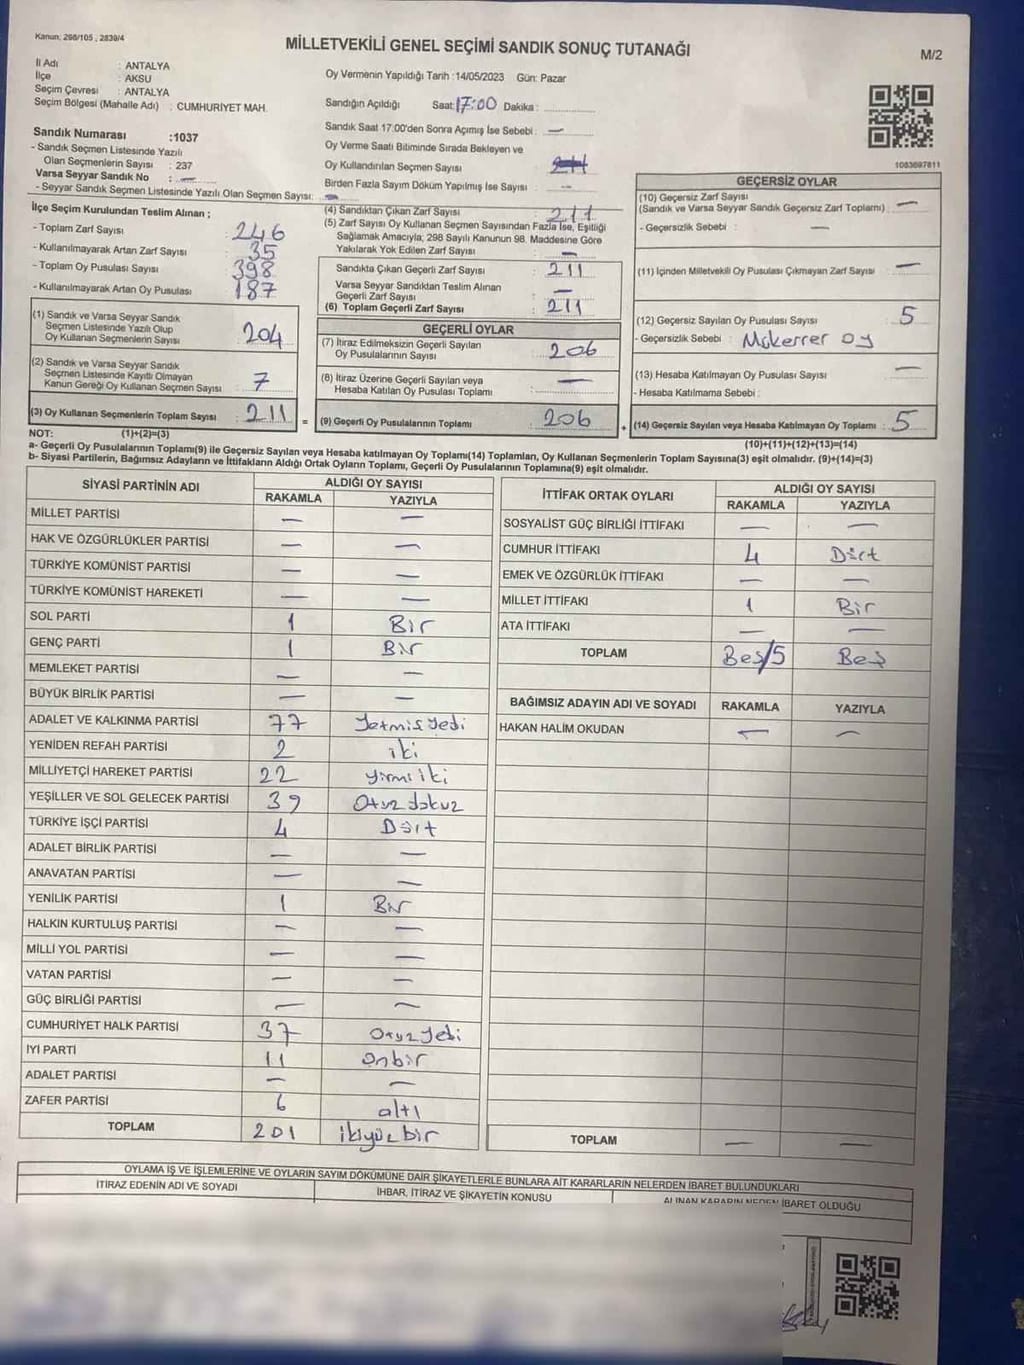 Kanun: 298/105 , 2839/4
MİLLETVEKİLİ GENEL SEÇİMİ SANDIK SONUÇ TUTANAĞI
M/2
İl Adı : ANTALYA
İlçe : AKSU
Seçim Çevresi : ANTALYA
Seçim Bölgesi (Mahalle Adı) : CUMHURİYET MAH.
Oy Vermenin Yapıldığı Tarih :14/05/2023 Gün: Pazar
Sandığın Açıldığı Saat: 17:00 Dakika:
Sandık Saat 17.00'den Sonra Açımış İse Sebebi : —
Oy Verme Saati Bitiminde Sırada Bekleyen ve
Oy Kullandırılan Seçmen Sayısı :
Birden Fazla Sayım Döküm Yapılmış İse Sayısı : —
1083697811
Sandık Numarası :1037
- Sandık Seçmen Listesinde Yazılı
Olan Seçmenlerin Sayısı : 237
Varsa Seyyar Sandık No : —
- Seyyar Sandık Seçmen Listesinde Yazılı Olan Seçmen Sayısı: —
İlçe Seçim Kurulundan Teslim Alınan ;
- Toplam Zarf Sayısı : 246
- Kullanılmayarak Artan Zarf Sayısı : 35
- Toplam Oy Pusulası Sayısı : 398
- Kullanılmayarak Artan Oy Pusulası : 187
(1) Sandık ve Varsa Seyyar Sandık
Seçmen Listesinde Yazılı Olup
Oy Kullanan Seçmenlerin Sayısı : 204
(2) Sandık ve Varsa Seyyar Sandık
Seçmen Listesinde Kayıtlı Olmayan
Kanun Gereği Oy Kullanan Seçmen Sayısı : 7
(3) Oy Kullanan Seçmenlerin Toplam Sayısı : 211
(4) Sandıktan Çıkan Zarf Sayısı : 211
(5) Zarf Sayısı Oy Kullanan Seçmen Sayısından Fazla İse, Eşitliği
Sağlamak Amacıyla; 298 Sayılı Kanunun 98. Maddesine Göre
Yakılarak Yok Edilen Zarf Sayısı : —
Sandıkta Çıkan Geçerli Zarf Sayısı : 211
Varsa Seyyar Sandıktan Teslim Alınan
Geçerli Zarf Sayısı : —
(6) Toplam Geçerli Zarf Sayısı : 211
GEÇERLİ OYLAR
(7) İtiraz Edilmeksizin Geçerli Sayılan
Oy Pusulalarının Sayısı : 206
(8) İtiraz Üzerine Geçerli Sayılan veya
Hesaba Katılan Oy Pusulası Toplamı : —
(9) Geçerli Oy Pusulalarının Toplamı : 206
GEÇERSİZ OYLAR
(10) Geçersiz Zarf Sayısı
(Sandık ve Varsa Seyyar Sandık Geçersiz Zarf Toplamı) : —
- Geçersizlik Sebebi : —
(11) İçinden Milletvekili Oy Pusulası Çıkmayan Zarf Sayısı : —
(12) Geçersiz Sayılan Oy Pusulası Sayısı : 5
- Geçersizlik Sebebi : Mükerrer oy
(13) Hesaba Katılmayan Oy Pusulası Sayısı : —
- Hesaba Katılmama Sebebi :
(14) Geçersiz Sayılan veya Hesaba Katılmayan Oy Toplamı : 5
NOT: (1)+(2)=(3)
(10)+(11)+(12)+(13)=(14)
a- Geçerli Oy Pusulalarının Toplamı(9) ile Geçersiz Sayılan veya Hesaba katılmayan Oy Toplamı(14) Toplamları, Oy Kullanan Seçmenlerin Toplam Sayısına(3) eşit olmalıdır. (9)+(14)=(3)
b- Siyasi Partilerin, Bağımsız Adayların ve İttifakların Aldığı Ortak Oyların Toplamı, Geçerli Oy Pusulalarının Toplamına(9) eşit olmalıdır.
SİYASİ PARTİNİN ADI ALDIĞI OY SAYISI
RAKAMLA YAZIYLA
MİLLET PARTİSİ — —
HAK VE ÖZGÜRLÜKLER PARTİSİ — —
TÜRKİYE KOMÜNİST PARTİSİ — —
TÜRKİYE KOMÜNİST HAREKETİ — —
SOL PARTİ 1 Bir
GENÇ PARTİ 1 Bir
MEMLEKET PARTİSİ — —
BÜYÜK BİRLİK PARTİSİ — —
ADALET VE KALKINMA PARTİSİ 77 Yetmiş yedi
YENİDEN REFAH PARTİSİ 2 iki
MİLLİYETÇİ HAREKET PARTİSİ 22 yirmi iki
YEŞİLLER VE SOL GELECEK PARTİSİ 39 Otuz dokuz
TÜRKİYE İŞÇİ PARTİSİ 4 Dört
ADALET BİRLİK PARTİSİ — —
ANAVATAN PARTİSİ — —
YENİLİK PARTİSİ 1 Bir
HALKIN KURTULUŞ PARTİSİ — —
MİLLİ YOL PARTİSİ — —
VATAN PARTİSİ — —
GÜÇ BİRLİĞİ PARTİSİ — —
CUMHURİYET HALK PARTİSİ 37 Otuz yedi
İYİ PARTİ 11 onbir
ADALET PARTİSİ — —
ZAFER PARTİSİ 6 altı
TOPLAM 201 ikiyüz bir
İTTİFAK ORTAK OYLARI ALDIĞI OY SAYISI
RAKAMLA YAZIYLA
SOSYALİST GÜÇ BİRLİĞİ İTTİFAKI — —
CUMHUR İTTİFAKI 4 Dört
EMEK VE ÖZGÜRLÜK İTTİFAKI — —
MİLLET İTTİFAKI 1 Bir
ATA İTTİFAKI — —
TOPLAM Beş/5 Beş
BAĞIMSIZ ADAYIN ADI VE SOYADI RAKAMLA YAZIYLA
HAKAN HALİM OKUDAN — —
TOPLAM — —
OYLAMA İŞ VE İŞLEMLERİNE VE OYLARIN SAYIM DÖKÜMÜNE DAİR ŞİKAYETLERLE BUNLARA AİT KARARLARIN NELERDEN İBARET BULUNDUKLARI
İTİRAZ EDENİN ADI VE SOYADI İHBAR, İTİRAZ VE ŞİKAYETİN KONUSU ALINAN KARARIN NEDEN İBARET OLDUĞU